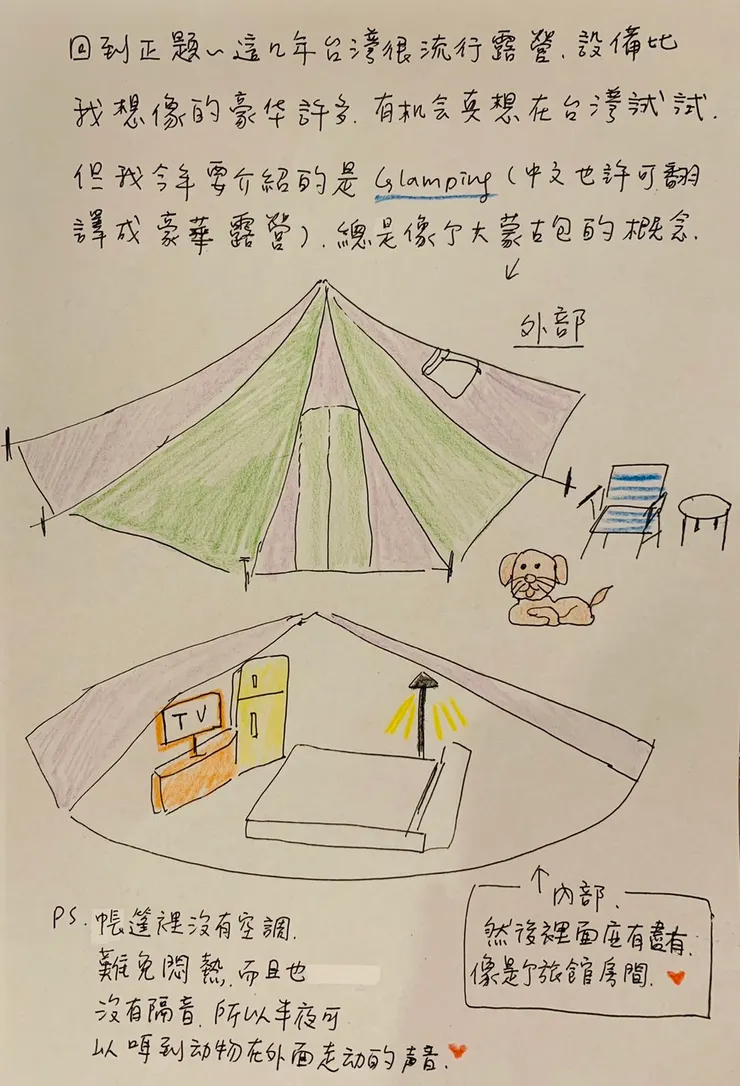 回到正題～這几年台灣很流行露營.設備比
我想像的豪华許多.有机会真想在台灣試試.
但我今年要介紹的是 Glamping (中文也許可翻
譯成豪華露營).總是像个大蒙古包的概念.
外部
TV
內部.
然後裡面应有盡有.
像是个旅館房間.
PS.帳篷裡沒有空調.
難免悶熱.而且也
沒有隔音.所以半夜可
以听到动物在外面走动的声音.